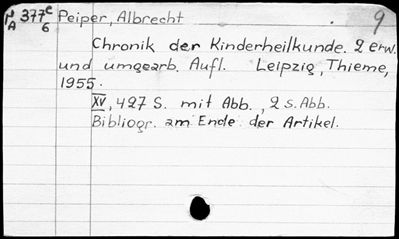 A 377e Peiper, Albrecht 9
6
Chronik der Kinderheilkunde. 2 erw.
und umgearb. Aufl. Leipzig, Thieme,
1955.
XV, 427 S. mit Abb., 2 s. Abb.
Bibliogr. am Ende der Artikel.